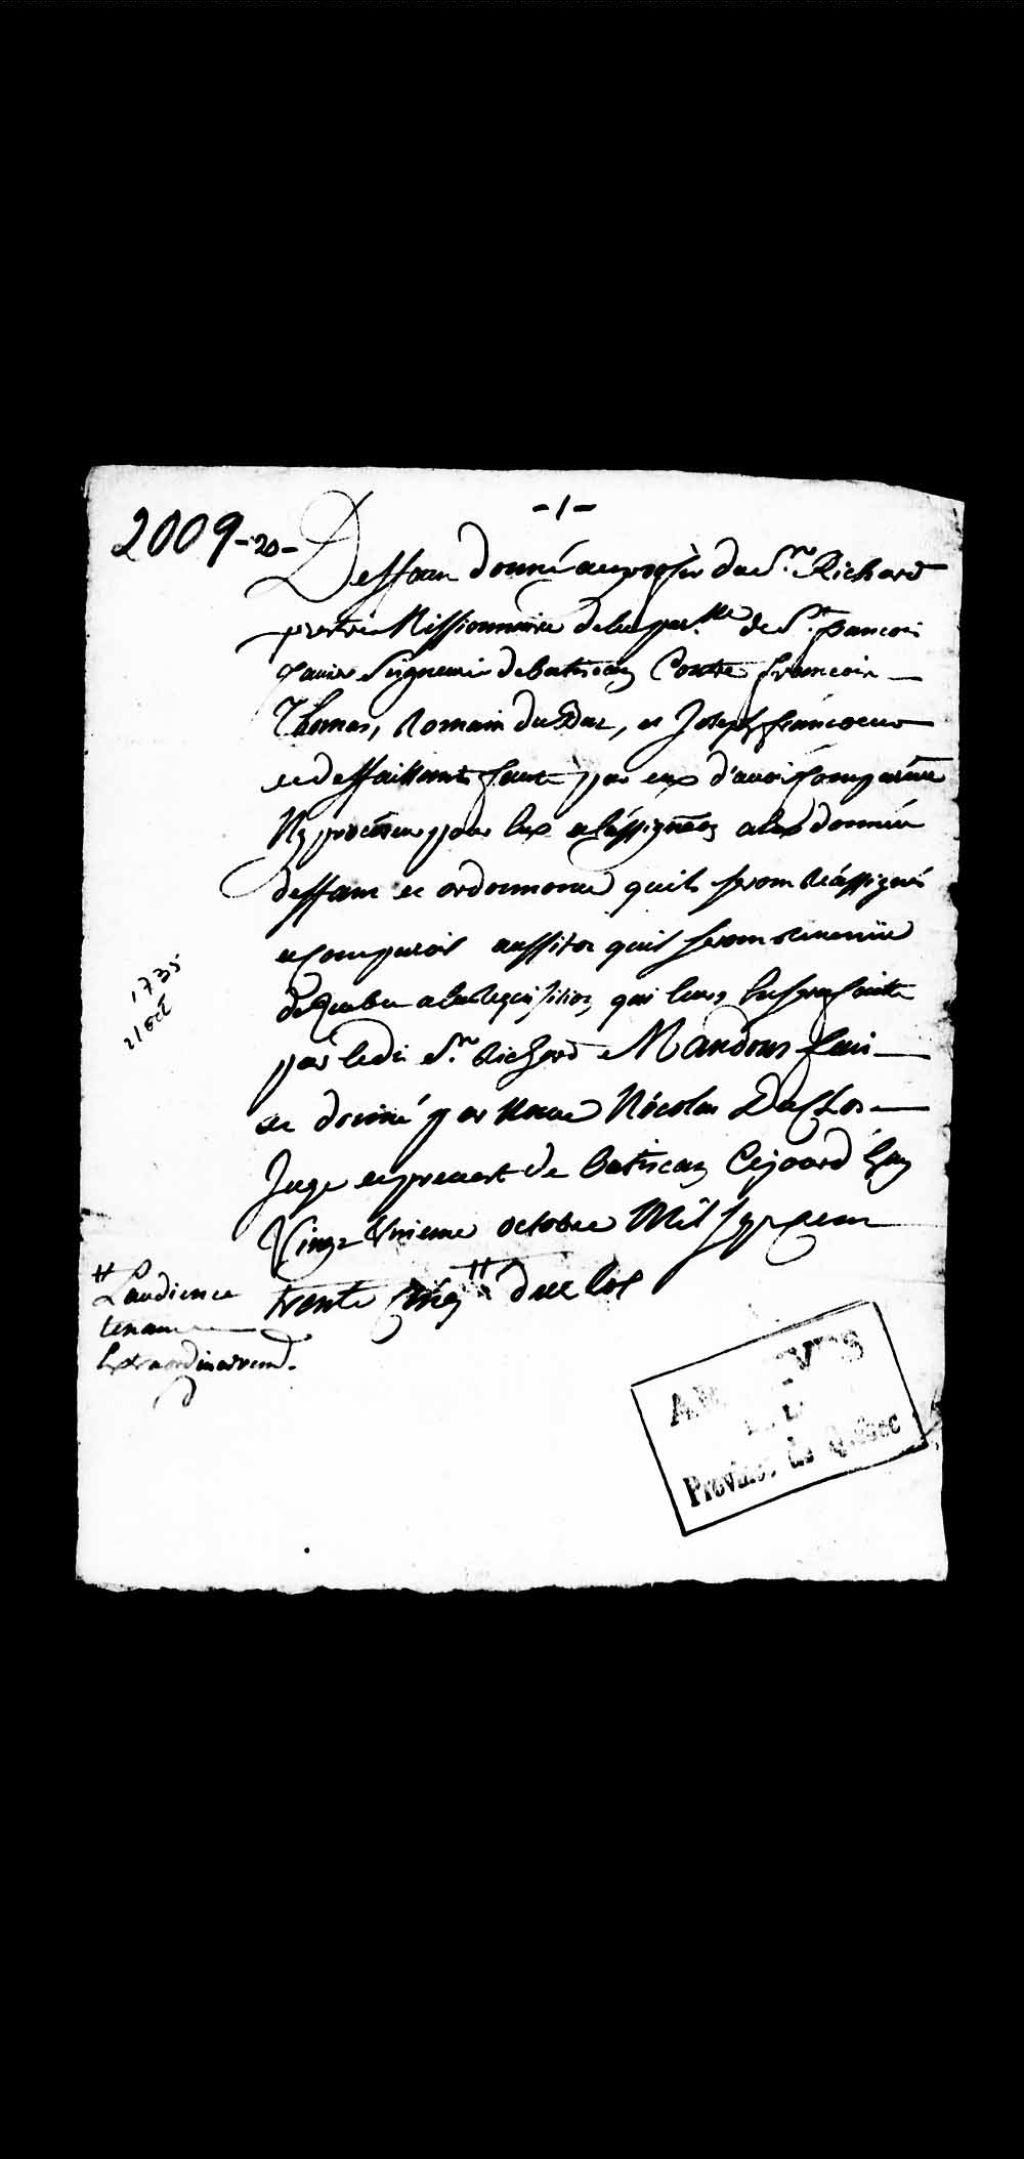 -1-
2009-20-
Deffaut donné au profit du Sr. Richard
prestre Missionnaire de la par.sse de St. francois
Xavier Seigneurie de batiscan Contre francois
Thomas, Romain du Duc, et Joseph francoeur
et deffaillants faute par eux d'avoir Comparüe
Ny procureur pour Eux assignéz a Eux donnée
deffaut et ordonnons quils seront Réassigné
a Comparoir aussitot quils seront revenüe
de Quebec a la Requisition qui leurs En sera faitte
par ledit Sr. Richard Mandons fait
et donné par Nous Nicolas Duclos
Juge et prevost de batiscan Cejourd'huy
Vingt Unieme octobre Mil Sept cent
trente Cinq # duclos
1735
21 oct
# L'audience
tenant
Extraordinairement.
Province de Québec